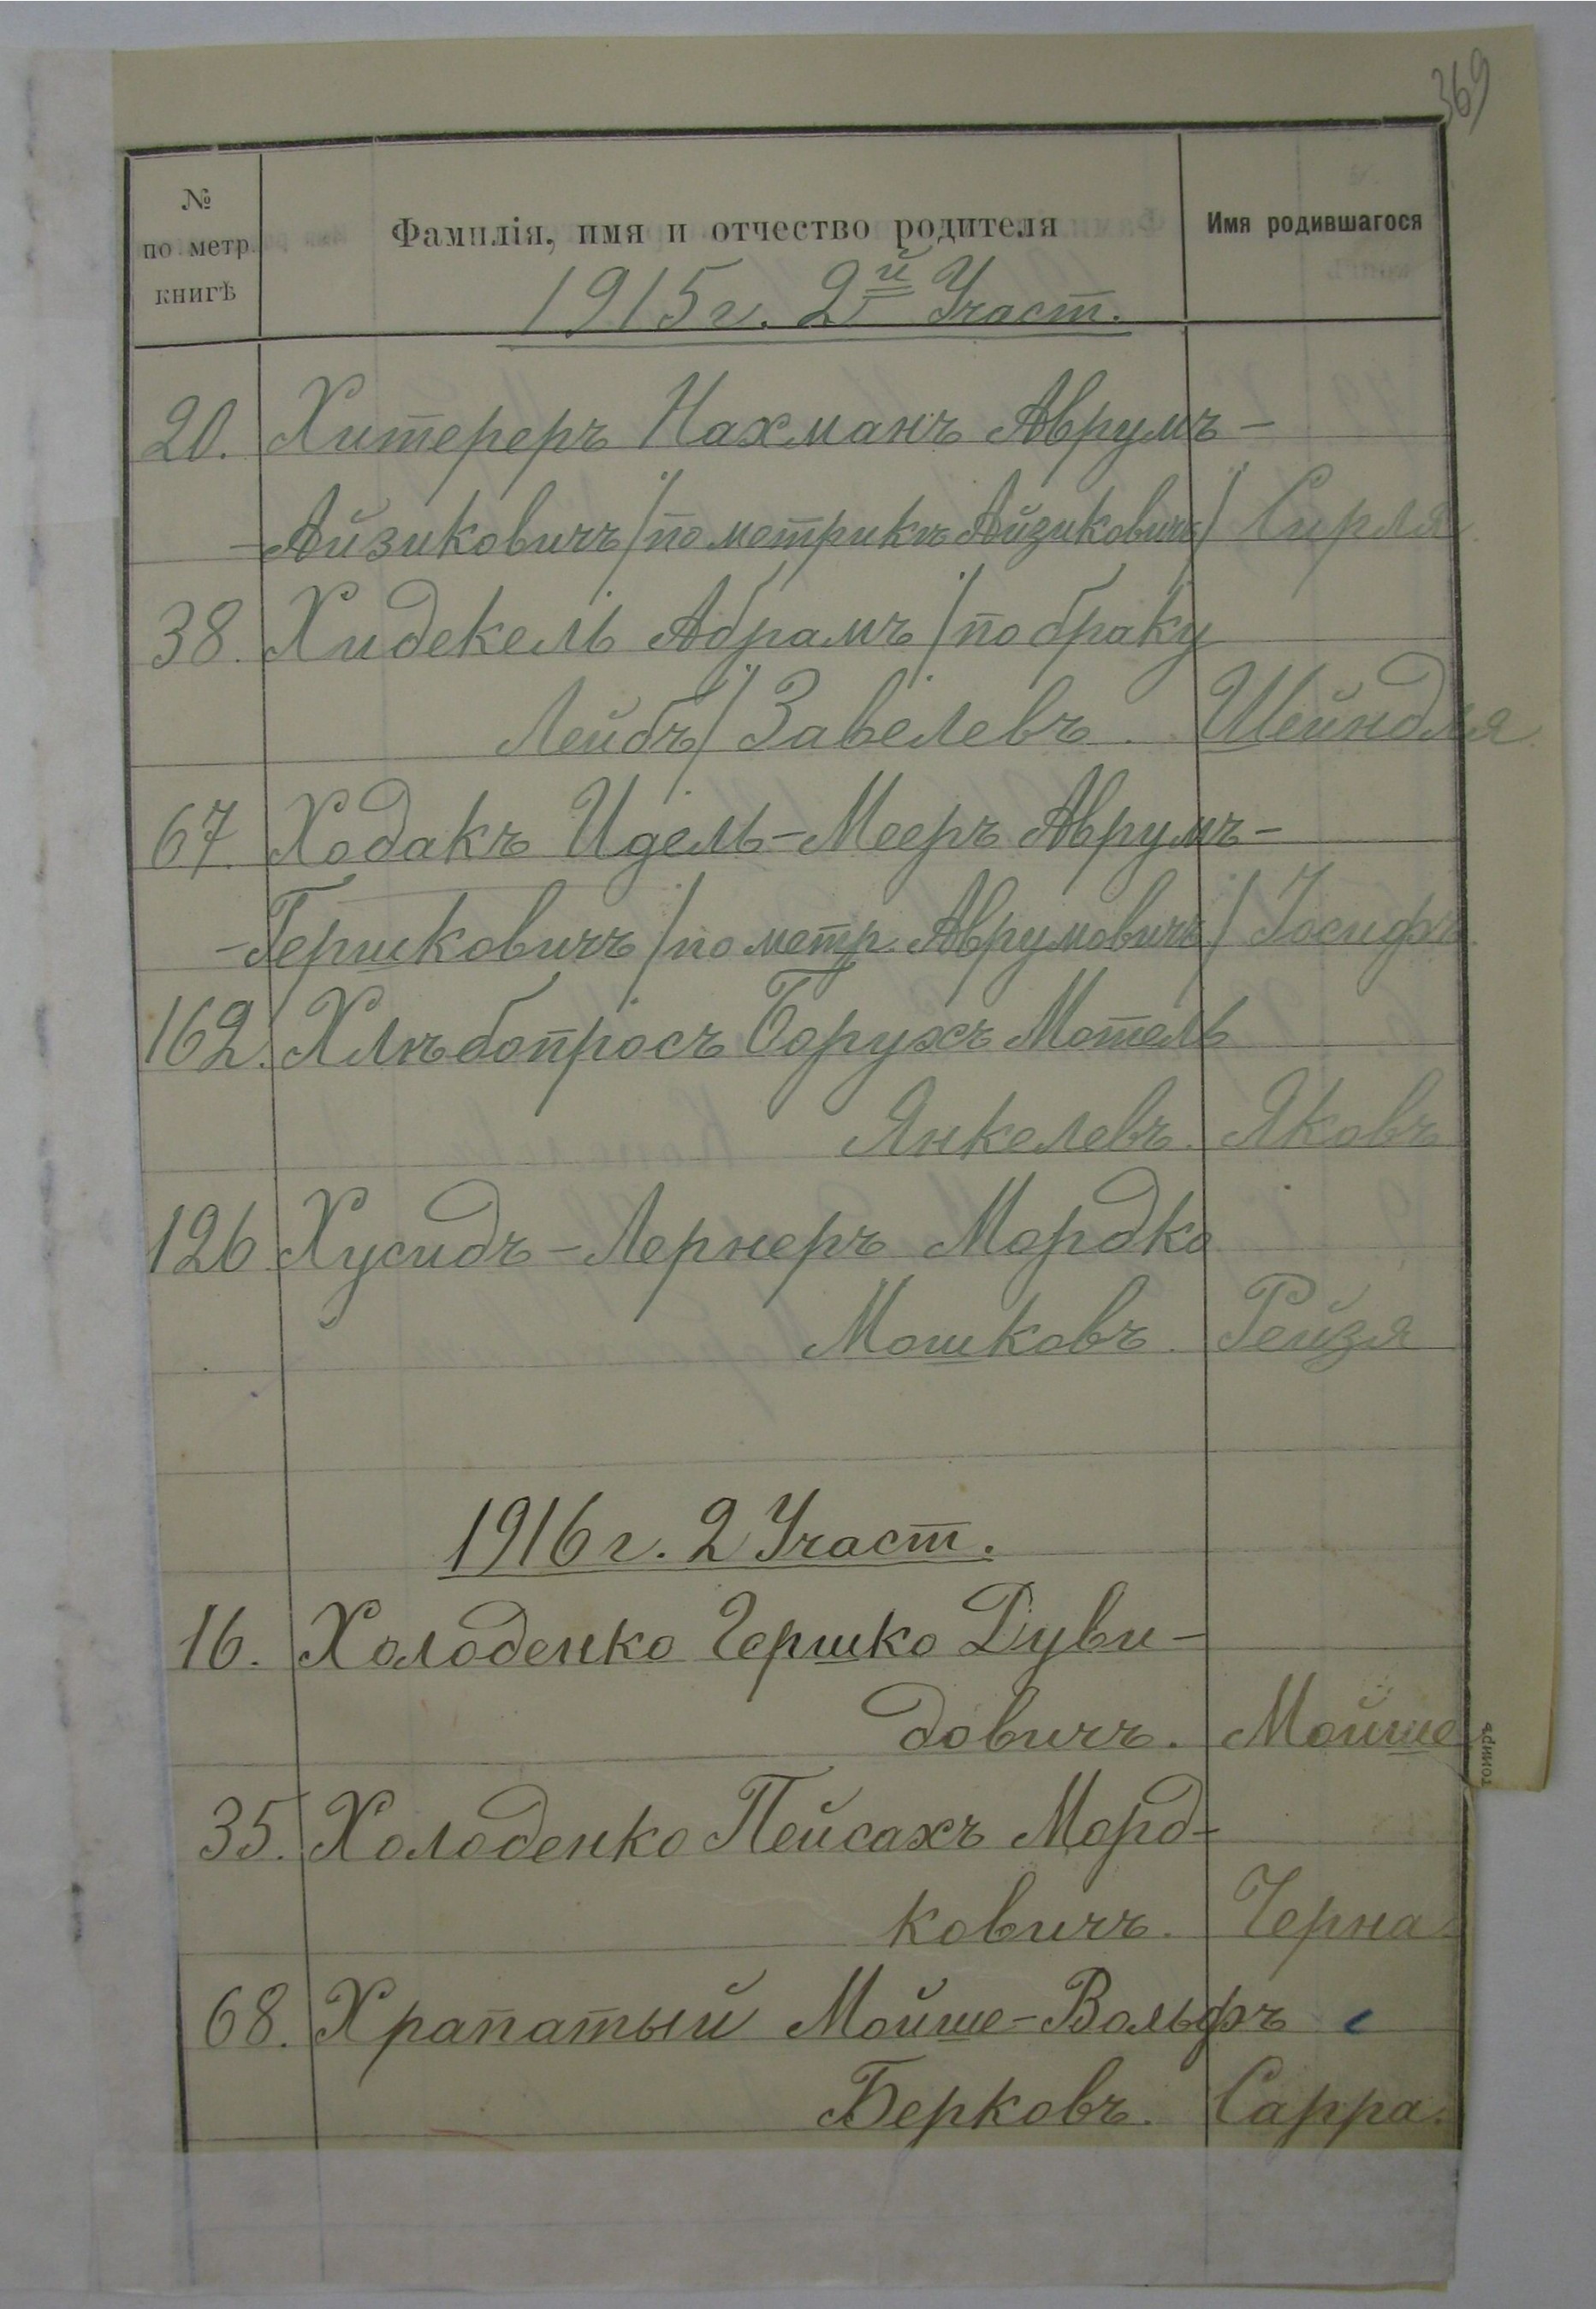 369
№ по метр. книгѣ
Фамилія, имя и отчество родителя
Имя родившагося
1915 г. 2й Участ.
20. Хитереръ Нахманъ Аврумъ-
-Айзиковичъ /по метрикѣ Айзиковичъ/ Сирля
38. Хидекель Абрамъ /по браку
Лейбъ/ Завелевъ. Шейндля.
67. Ходакъ Идель-Мееръ Аврумъ-
-Гершковичъ /по метр. Аврумовичъ/ Іосифъ.
162. Хлѣбопросъ Борухъ Мотель
Янкелевъ. Яковъ
126 Хусидъ-Лернеръ Мордко
Мошковъ. Рейзя
1916 г. 2 Участ.
16. Холоденко Гершко Дуви-
довичъ. Мойше
35. Холоденко Пейсахъ Морд-
ковичъ. Черна.
68. Храпатый Мойше-Вольфъ
Берковъ. Сарра.
томиръ